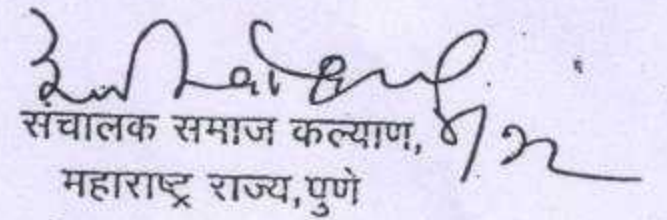 संचालक समाज कल्याण,
महाराष्ट्र राज्य,पुणे